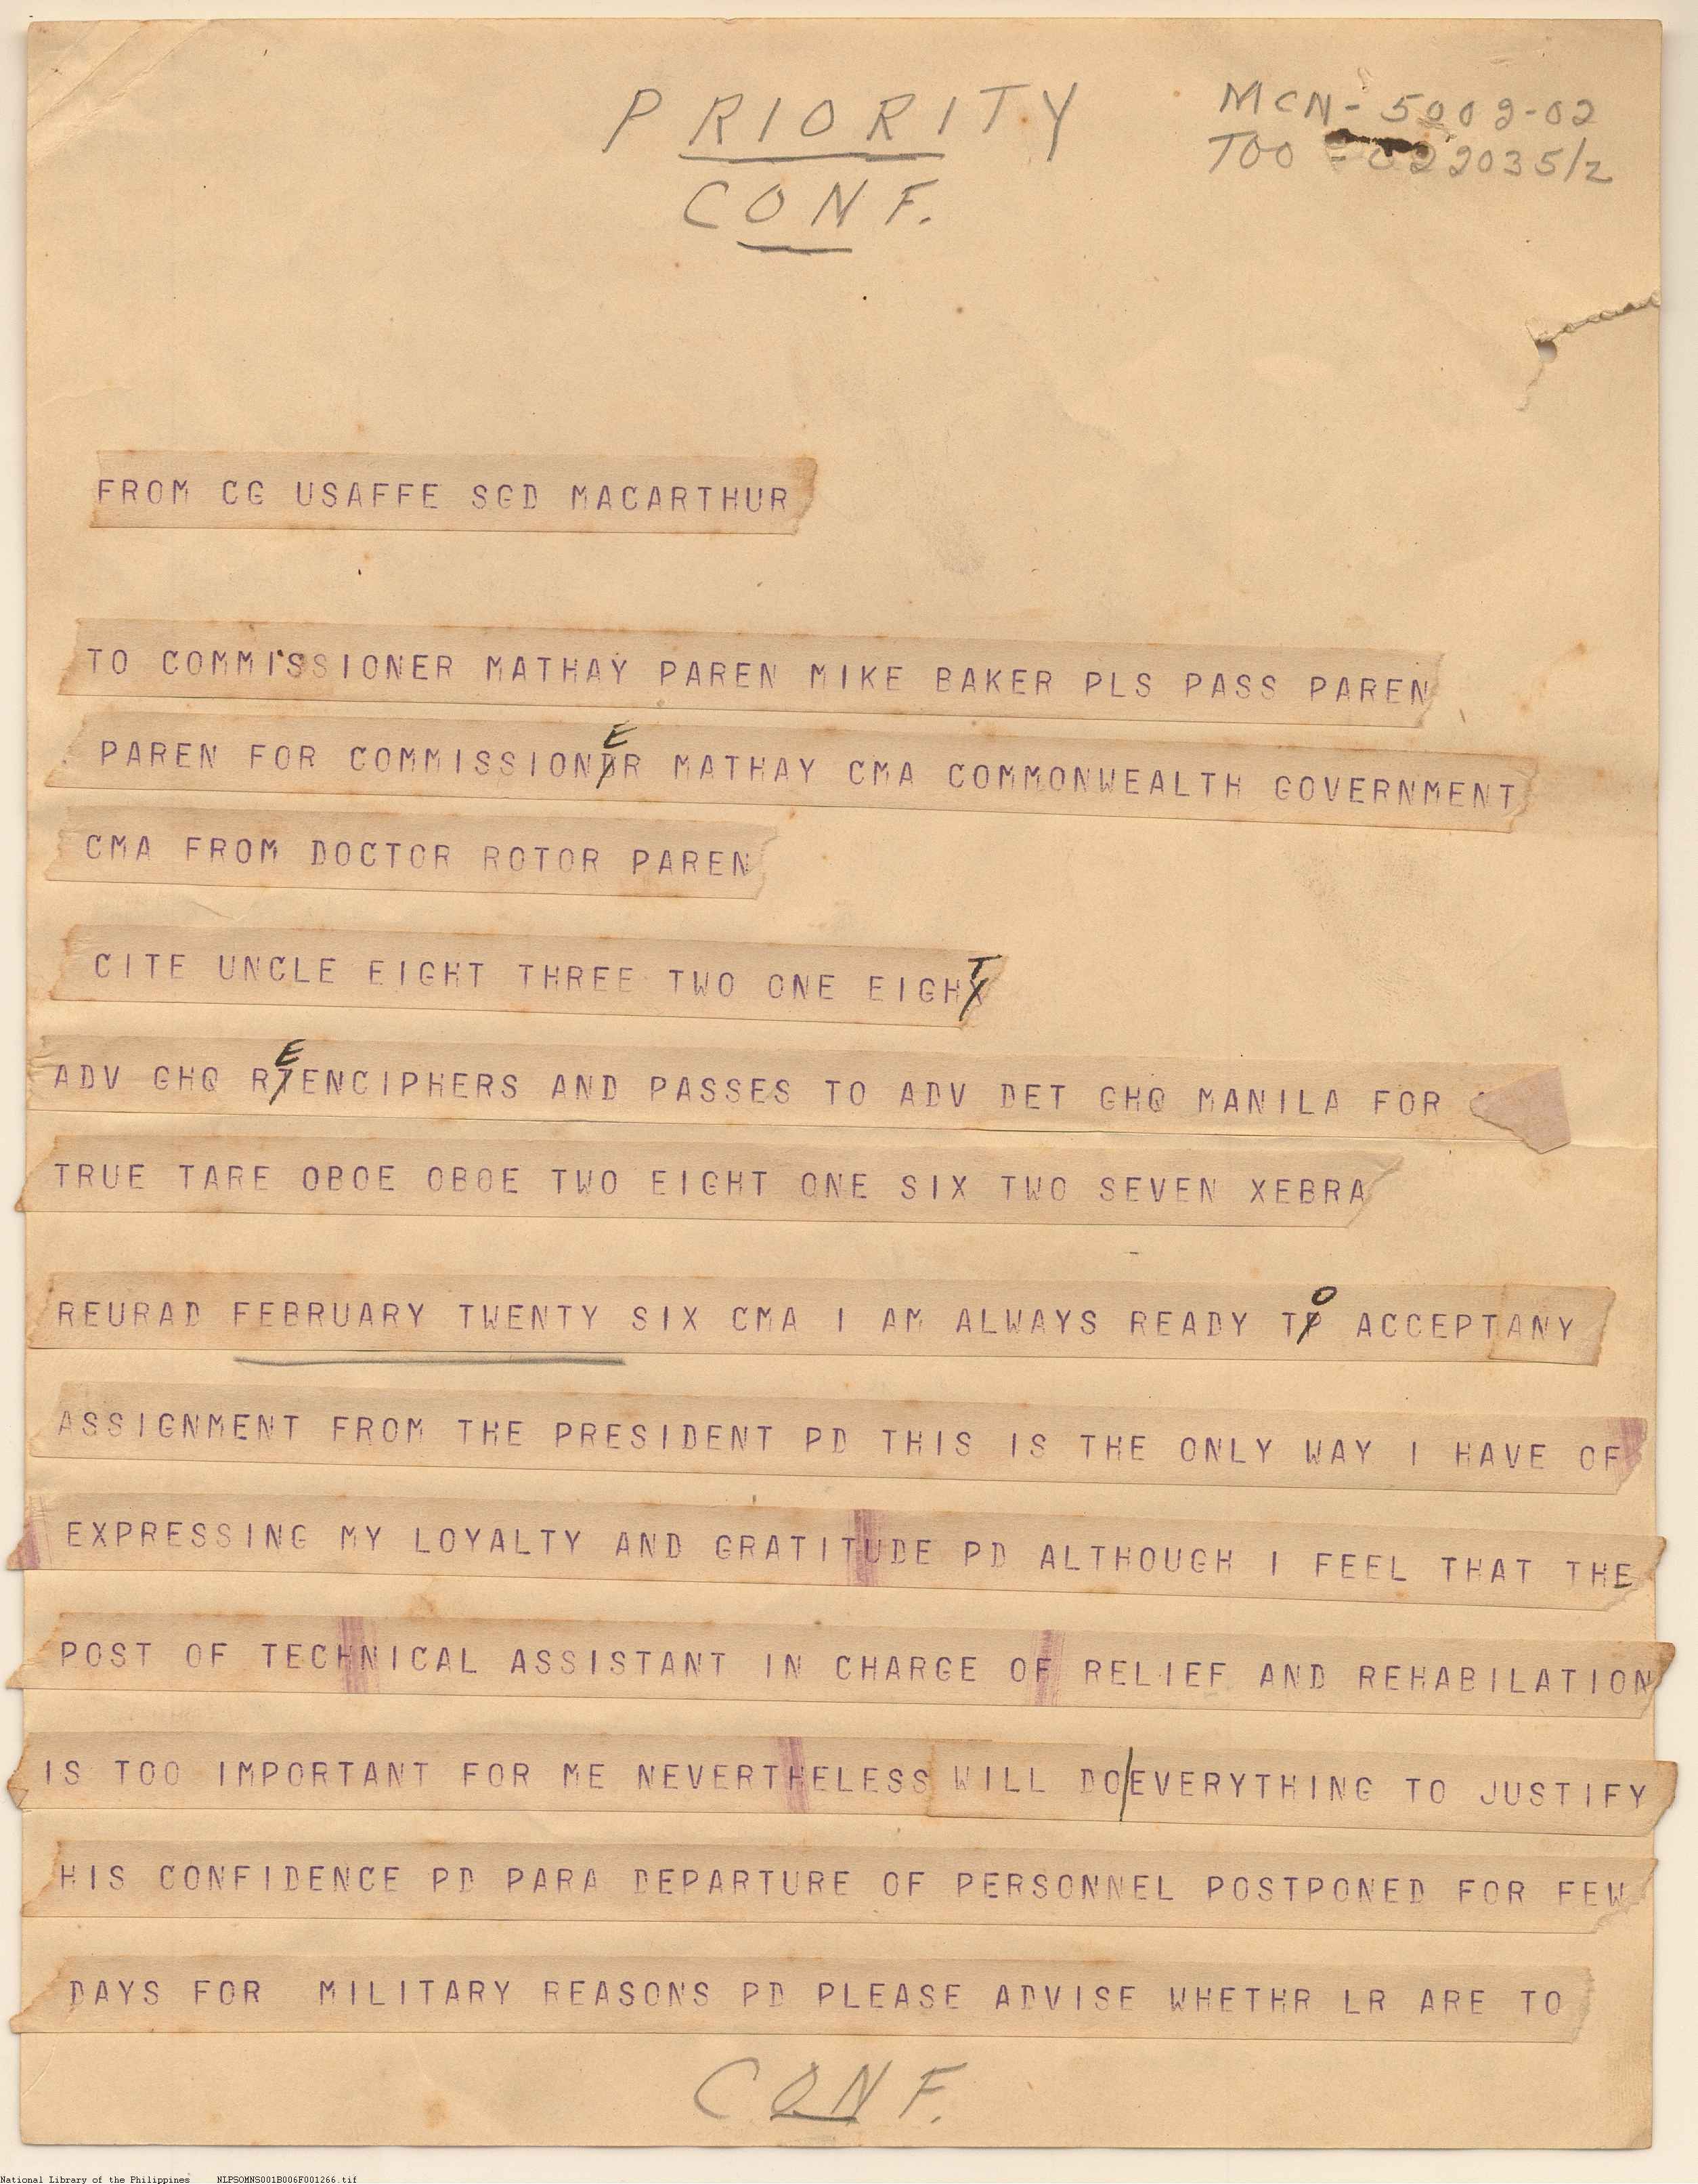 PRIORITY
CONF.
MCN- 5009-02
TOO 022035/Z
FROM CG USAFFE SGD MACARTHUR
TO COMMISSIONER MATHAY PAREN MIKE BAKER PLS PASS PAREN
PAREN FOR COMMISSIONER MATHAY CMA COMMONWEALTH GOVERNMENT
CMA FROM DOCTOR ROTOR PAREN
CITE UNCLE EIGHT THREE TWO ONE EIGHT
ADV GHQ REENCIPHERS AND PASSES TO ADV DET GHQ MANILA FOR
TRUE TARE OBOE OBOE TWO EIGHT ONE SIX TWO SEVEN XEBRA
REURAD FEBRUARY TWENTY SIX CMA I AM ALWAYS READY TO ACCEPTANY
ASSIGNMENT FROM THE PRESIDENT PD THIS IS THE ONLY WAY I HAVE OF
EXPRESSING MY LOYALTY AND GRATITUDE PD ALTHOUGH I FEEL THAT THE
POST OF TECHNICAL ASSISTANT IN CHARGE OF RELIEF AND REHABILATION
IS TOO IMPORTANT FOR ME NEVERTHELESS WILL DO/EVERYTHING TO JUSTIFY
HIS CONFIDENCE PD PARA DEPARTURE OF PERSONNEL POSTPONED FOR FEW
DAYS FOR MILITARY REASONS PD PLEASE ADVISE WHETHR LR ARE TO
CONF.
National Library of the Philippines NLPSOMNS001B006F001266.tif